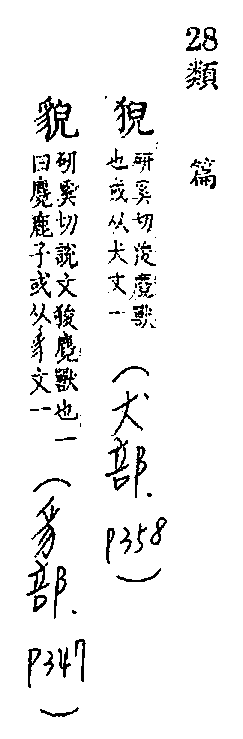 28類篇
猊
研奚切狻麑獸
也或从犬文一
(犬部.p358)
貎
研奚切說文狻麑獸也一
曰麑鹿子或从豸文一
(豸部.p347)